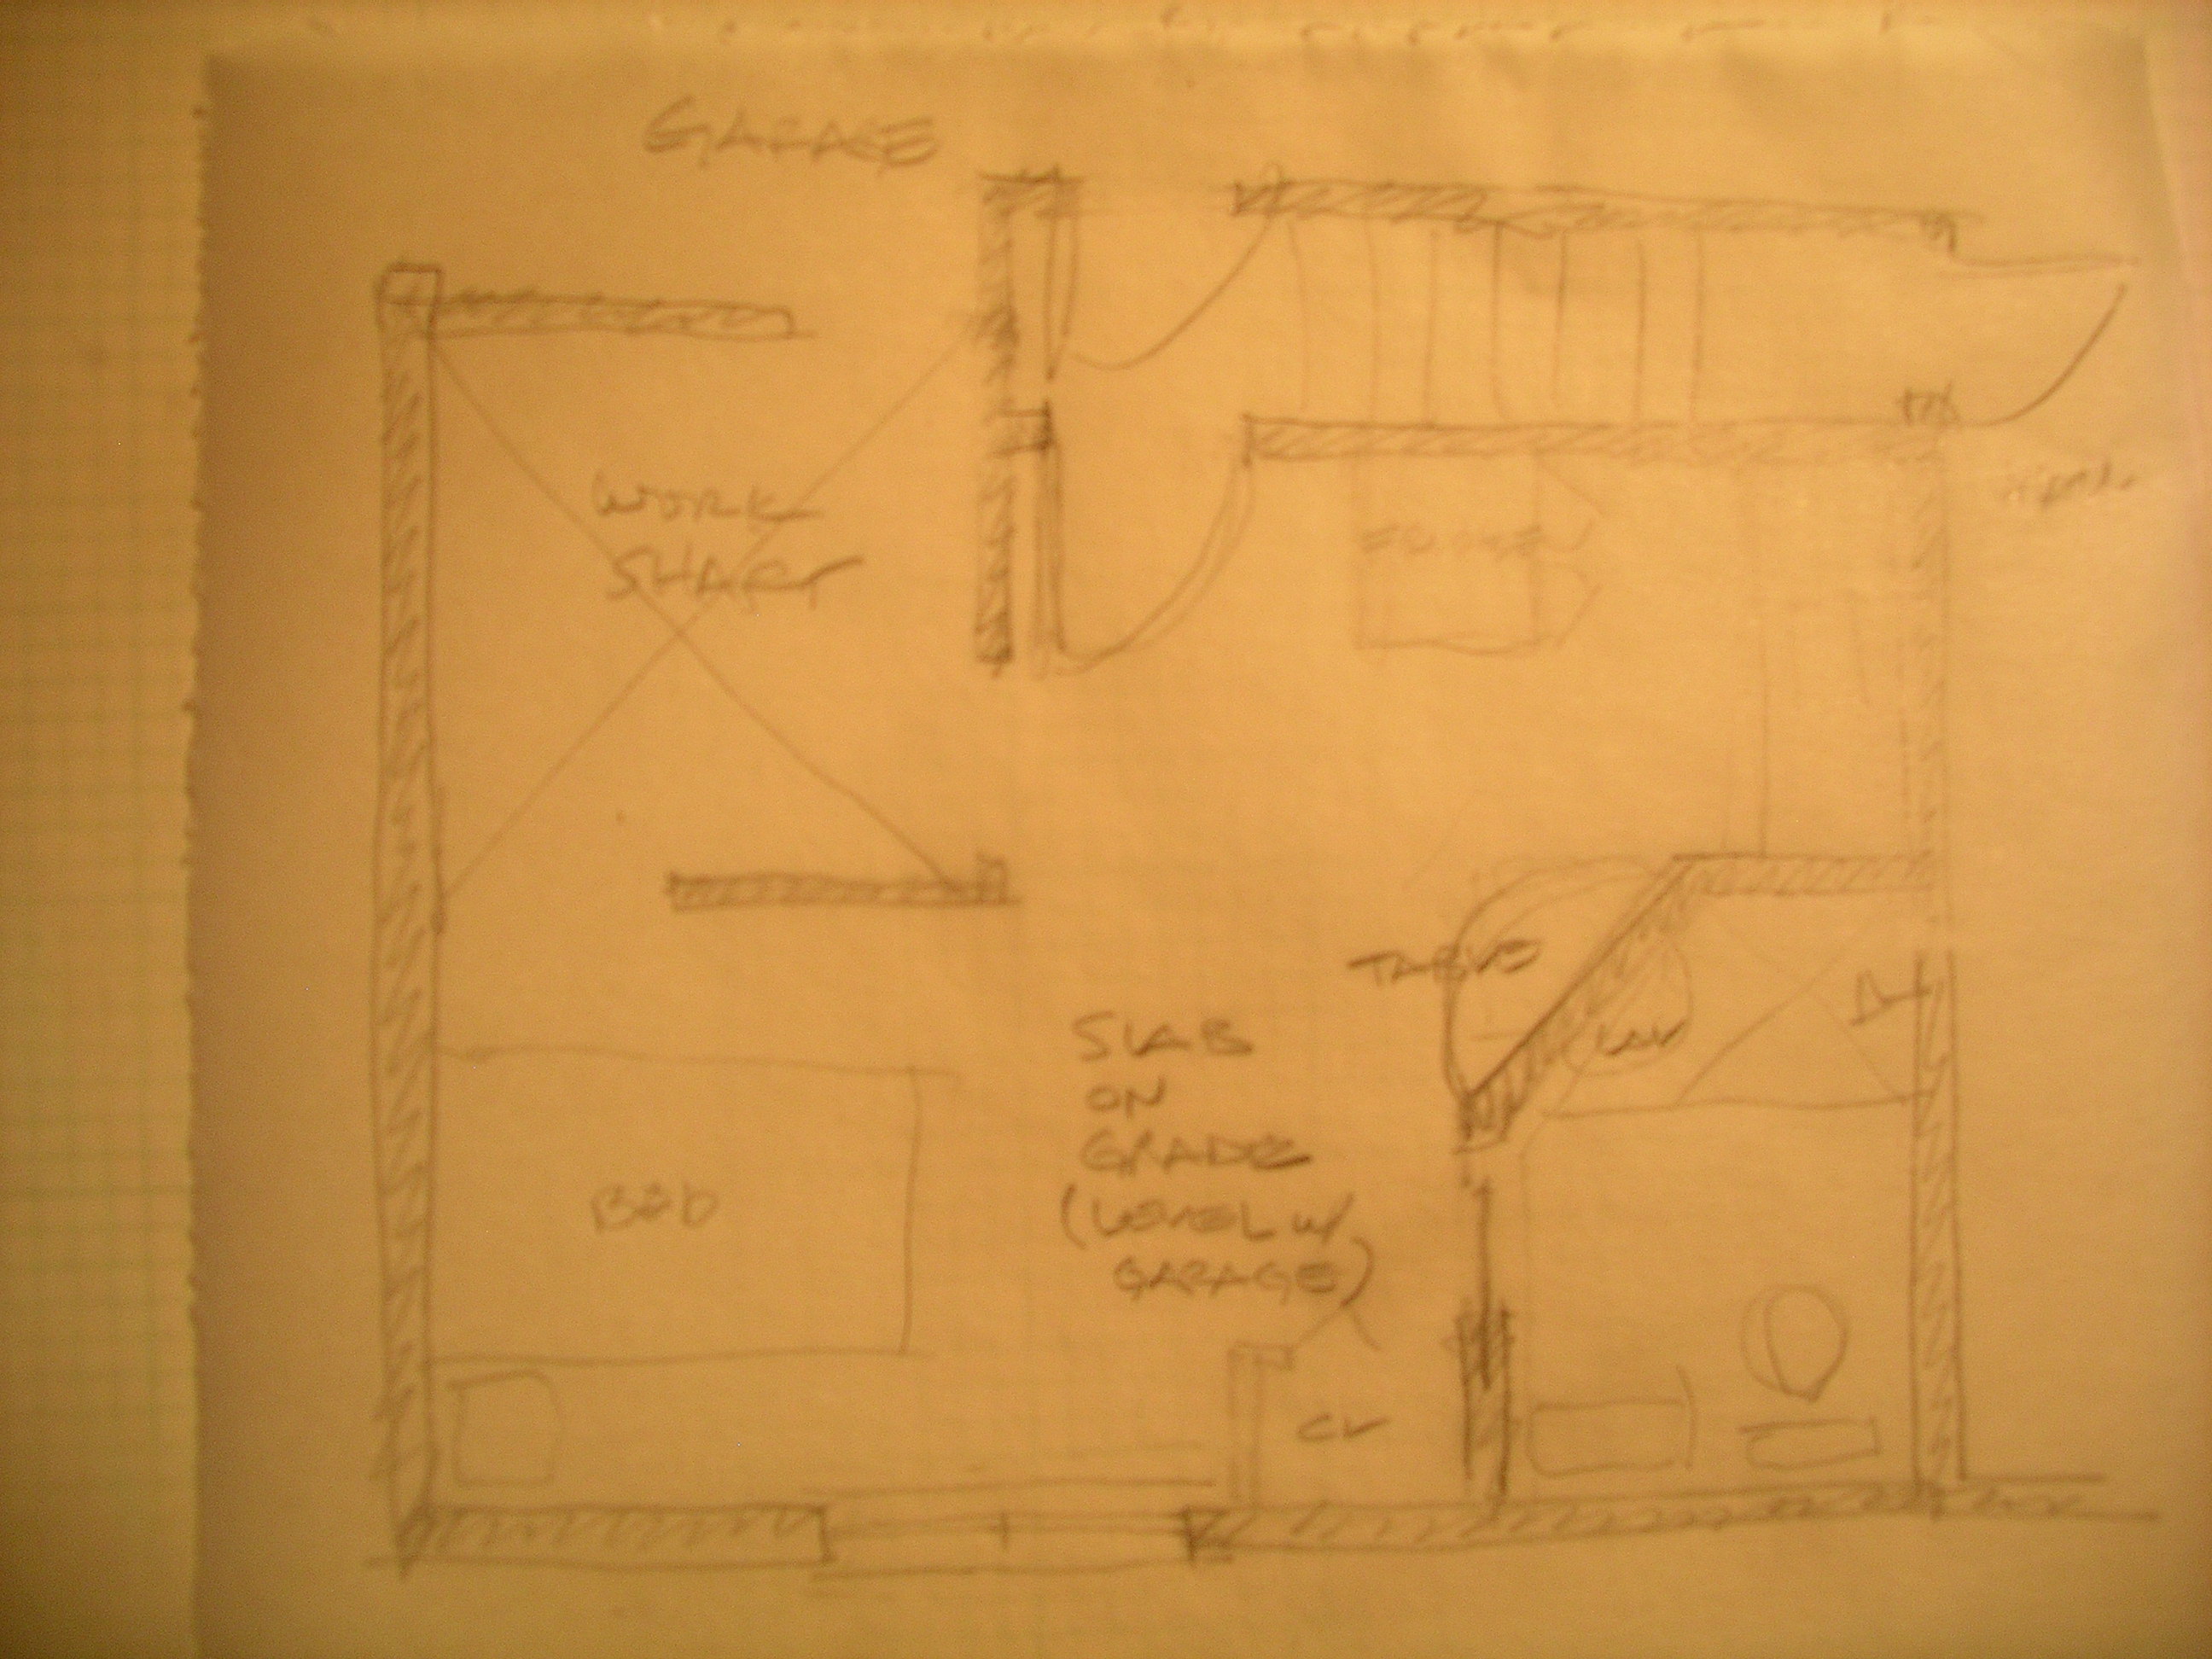 GARAGE
WORK
TABLE
LAV
SLAB
ON
GRADE
(LEVEL w/
GARAGE)
BED
CL